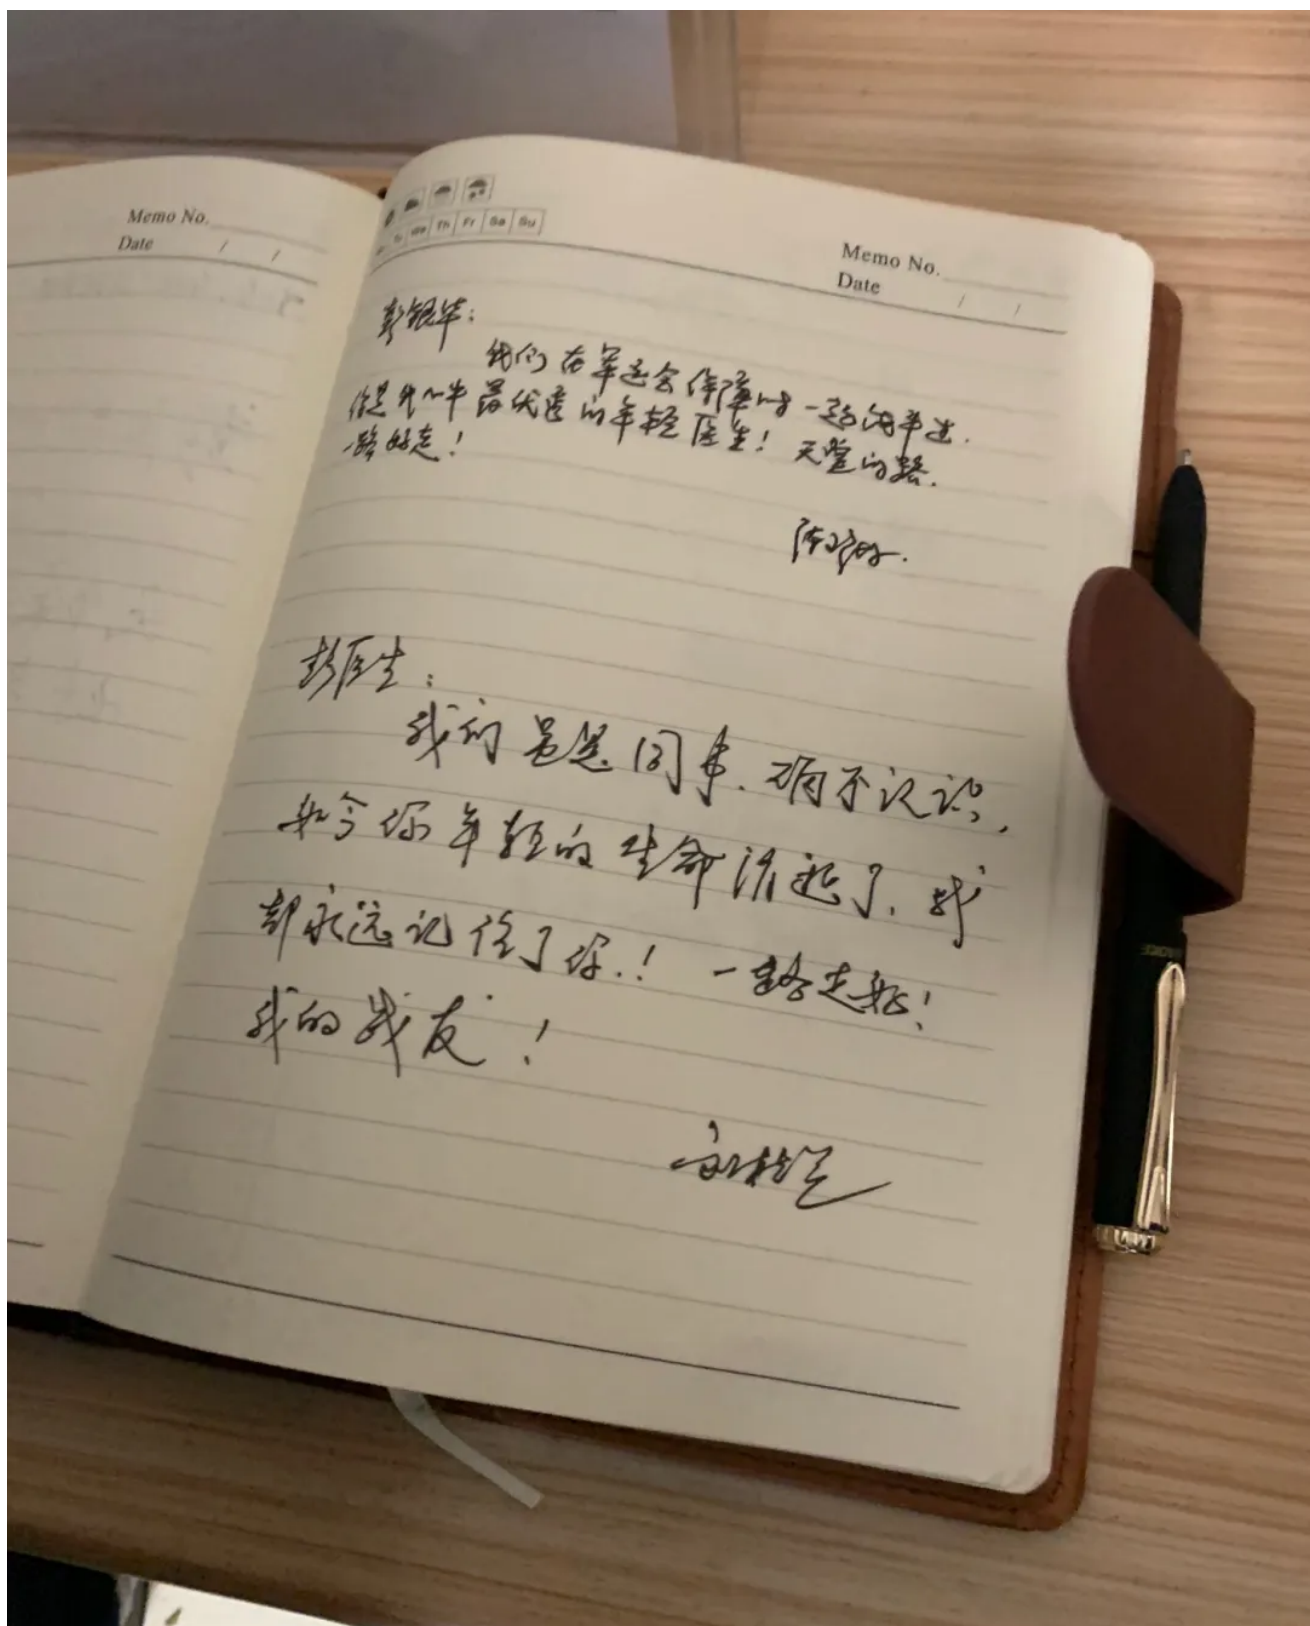 Memo No.
Date / /
Tu We Th Fr Sa Su
Memo No.
Date / /
彭银华:
我们在军运会保障时一起
你是我心中最优秀的年轻医生! 天堂的路.
一路好走!
彭医生:
我们虽是同事.确不认识,
如今你年轻的生命消逝了.我
却永远记住了你.! 一路走好!
我的战友!